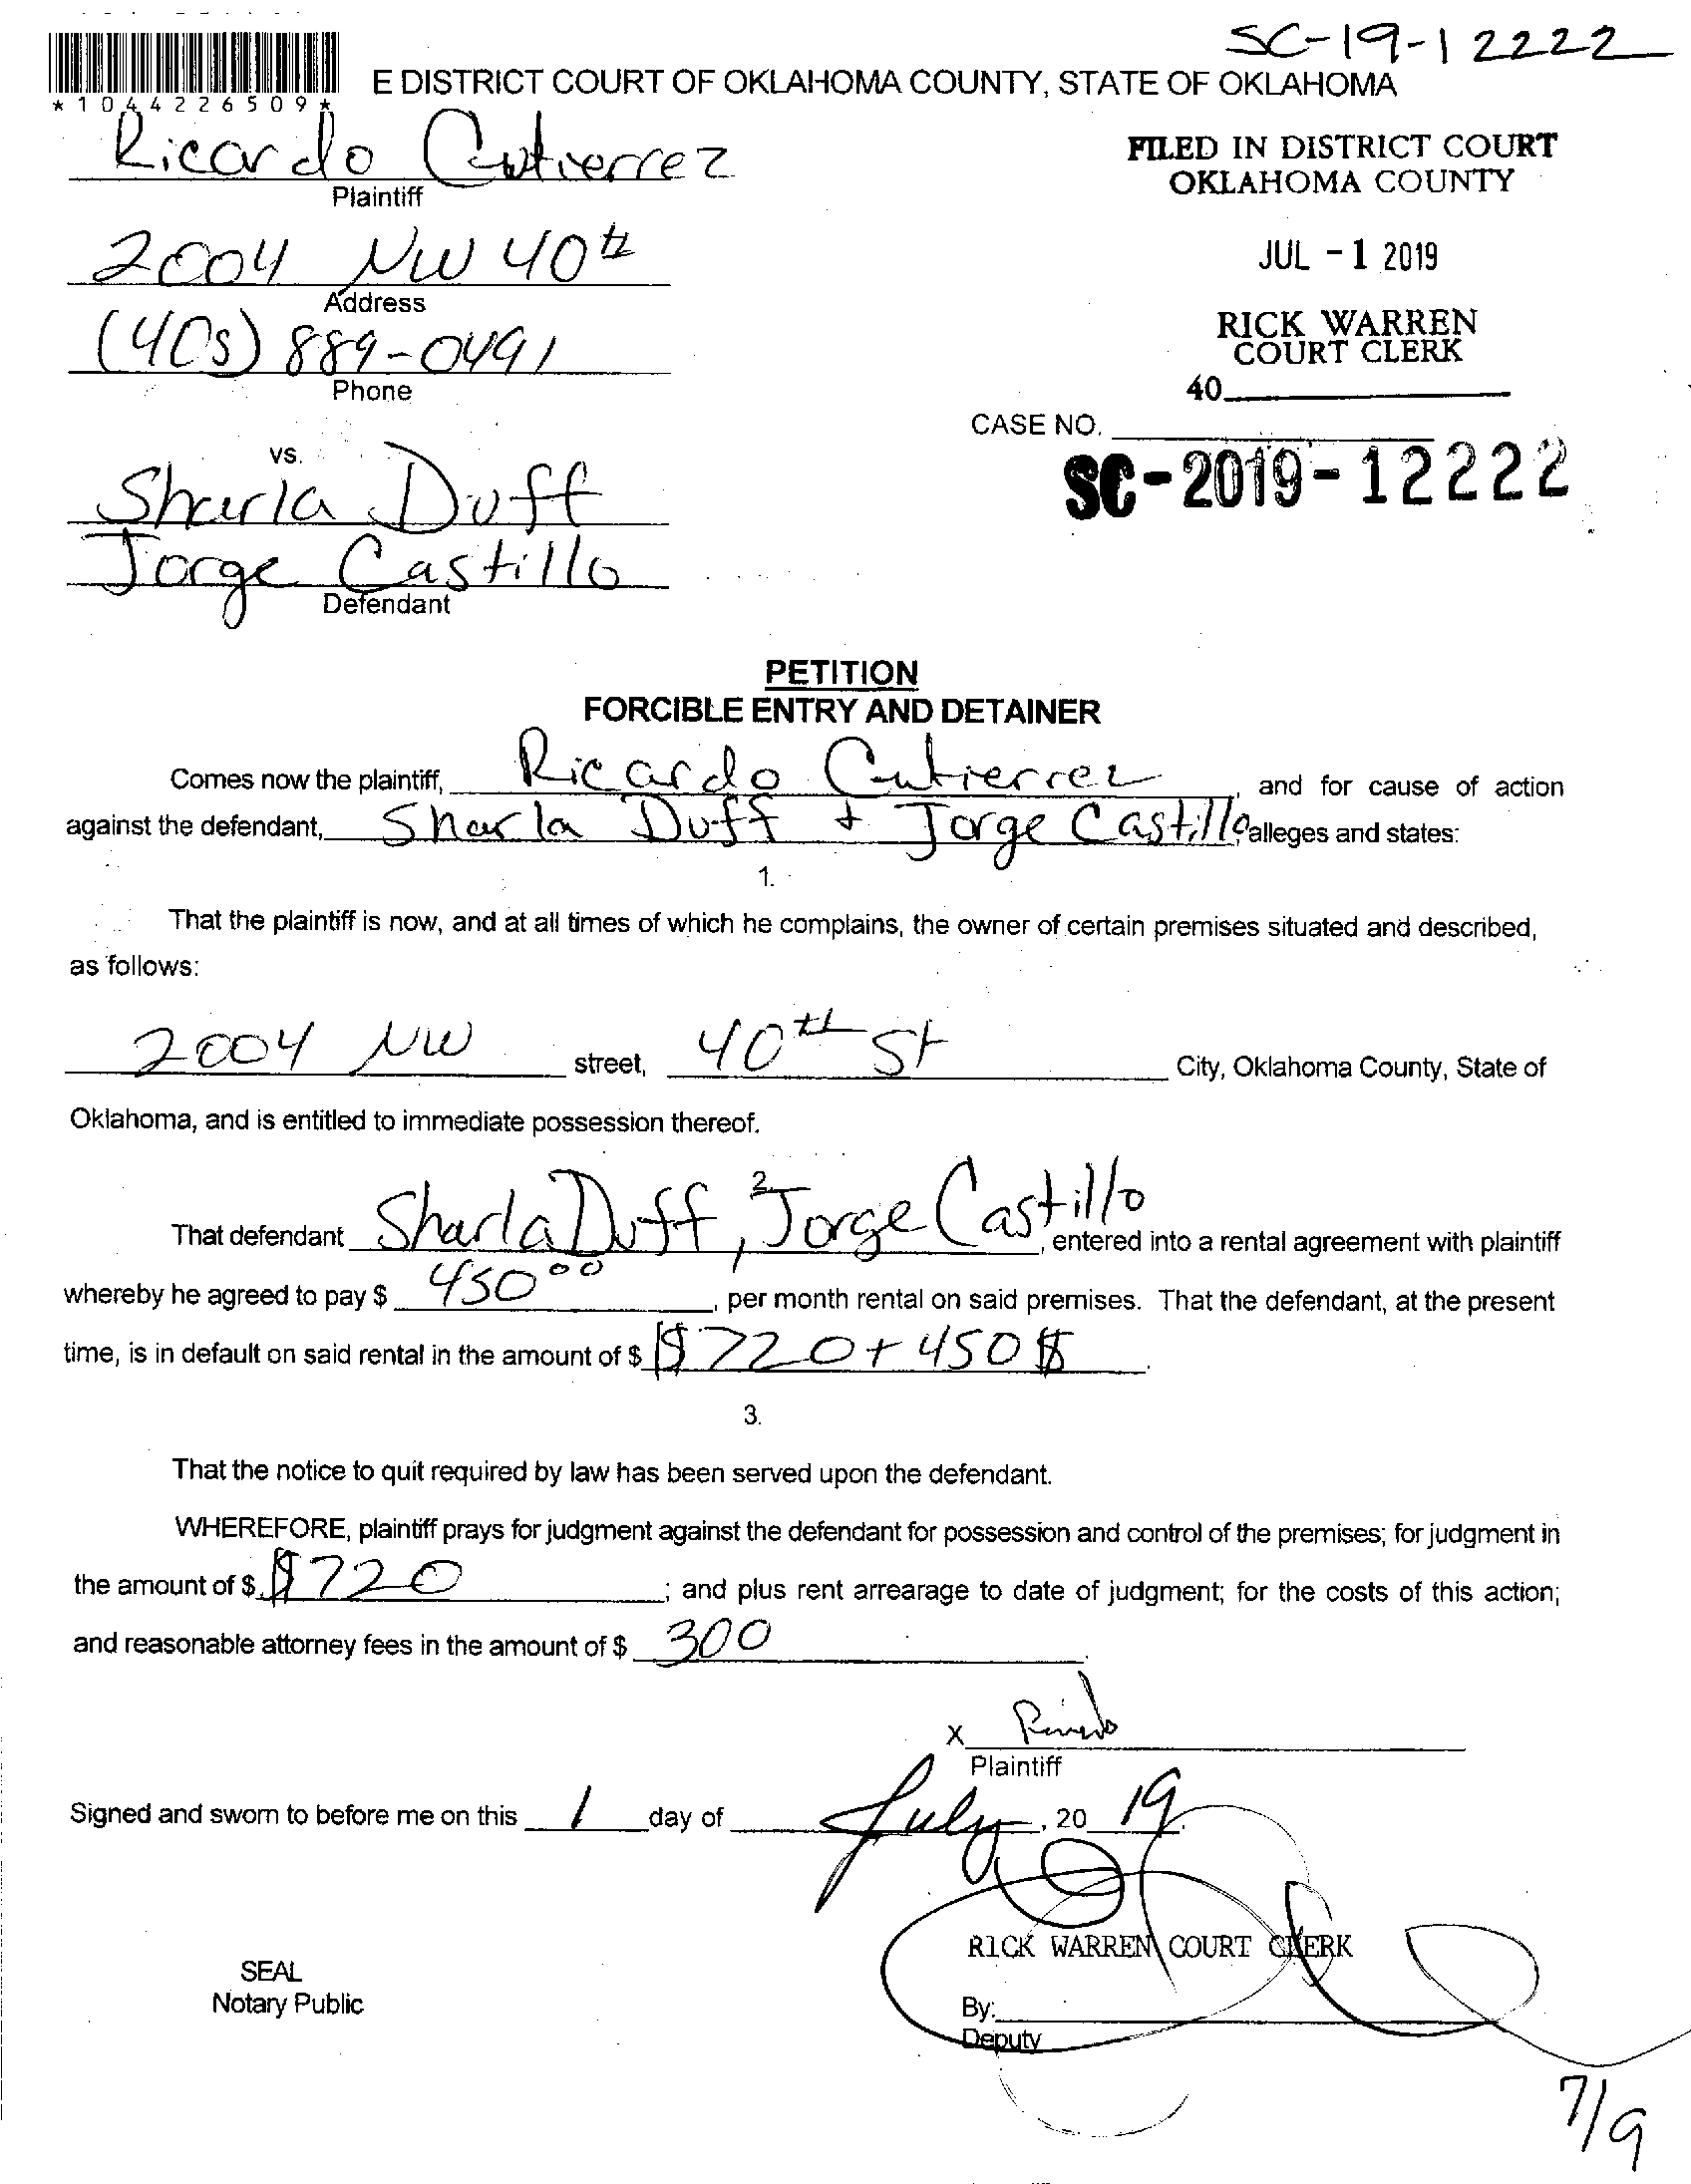 SC-19-12222
E DISTRICT COURT OF OKLAHOMA COUNTY, STATE OF OKLAHOMA
*1044226509*
Ricardo Gutierrez
Plaintiff
FILED IN DISTRICT COURT
OKLAHOMA COUNTY
2004 NW 40th
Address
JUL -1 2019
(405) 889-0491
Phone
RICK WARREN
COURT CLERK
40
CASE NO.
SC-2019-12222
vs.
Sharla Duff
Jorge Castillo
Defendant
PETITION
FORCIBLE ENTRY AND DETAINER
Comes now the plaintiff, Ricardo Gutierrez, and for cause of action
against the defendant, Sharla Duff + Jorge Castillo, alleges and states:
1.
That the plaintiff is now, and at all times of which he complains, the owner of certain premises situated and described,
as follows:
2004 NW street, 40th St City, Oklahoma County, State of
Oklahoma, and is entitled to immediate possession thereof.
2.
That defendant Sharla Duff, Jorge Castillo, entered into a rental agreement with plaintiff
whereby he agreed to pay $ 450 00, per month rental on said premises. That the defendant, at the present
time, is in default on said rental in the amount of $ $720+450$.
3.
That the notice to quit required by law has been served upon the defendant.
WHEREFORE, plaintiff prays for judgment against the defendant for possession and control of the premises; for judgment in
the amount of $ $720; and plus rent arrearage to date of judgment; for the costs of this action;
and reasonable attorney fees in the amount of $ 300.
X
Plaintiff
Signed and sworn to before me on this 1 day of July, 20 19.
RICK WARREN COURT CLERK
SEAL
Notary Public
By:
Deputy
7/9